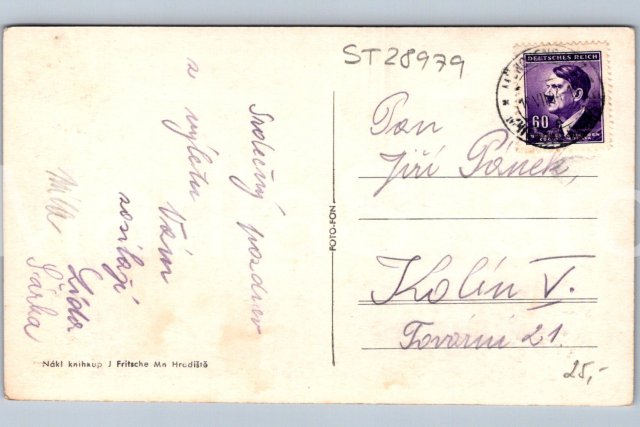 ST28979
DEUTSCHES REICH
60
Srdečný pozdrav
z výletu Vám
zasílají
Lída
Šárka
Míla
Pan
Jiří Pánek,
Kolín V.
Tovární 21.
FOTO-FON
Nákl knihkup J Fritsche Mn Hradiště
25,-